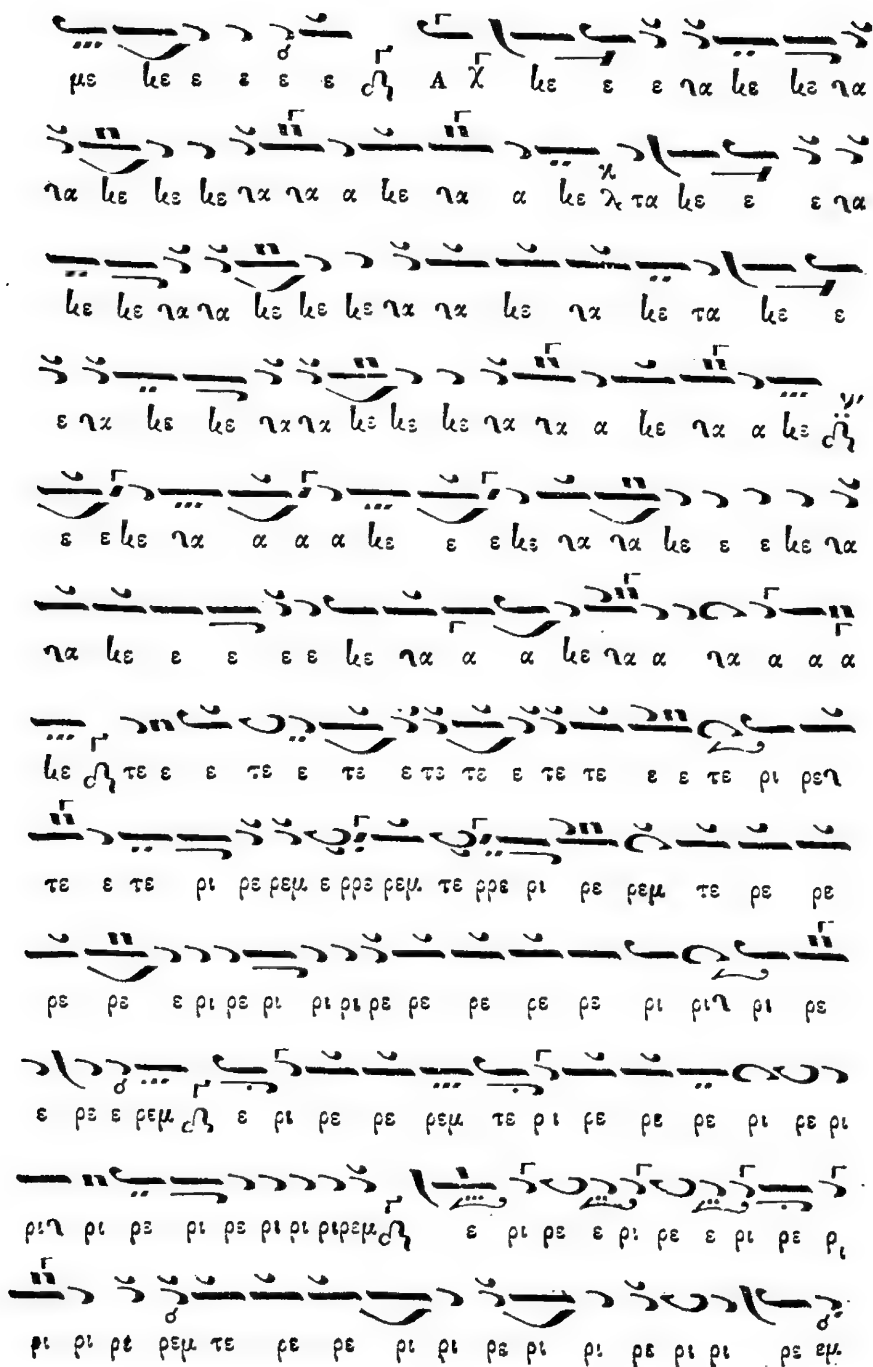 με νε ε ε ε ε Α χ νε ε ε να νε νε να
να νε νε νε να να α νε να α νε τα νε ε ε να
νε νε να να νε νε νε να να νε να νε τα νε ε
ε να νε νε να να νε νε νε να να α νε να α νε
ε ε νε να α α α νε ε ε νε να να νε ε ε νε να
να νε ε ε ε ε νε να α α νε να α να α α α
νε τε ε ε τε ε τε ε τε τε ε τε τε ε ε τε ρι ρεν
τε ε τε ρι ρε ρεμ ε ρρε ρεμ τε ρρε ρι ρε ρεμ τε ρε ρε
ρε ρε ε ρι ρε ρι ρι ρι ρε ρε ρε ρε ρε ρι ριν ρι ρε
ε ρε ε ρεμ ε ρι ρε ρε ρεμ τε ρι ρε ρε ρε ρι ρε ρι
ριν ρι ρε ρι ρε ρι ρι ριρεμ ε ρι ρε ε ρι ρε ε ρι ρε ρι
ρι ρι ρε ρεμ τε ρε ρε ρι ρι ρε ρι ρι ρε ρι ρι ρε εμ